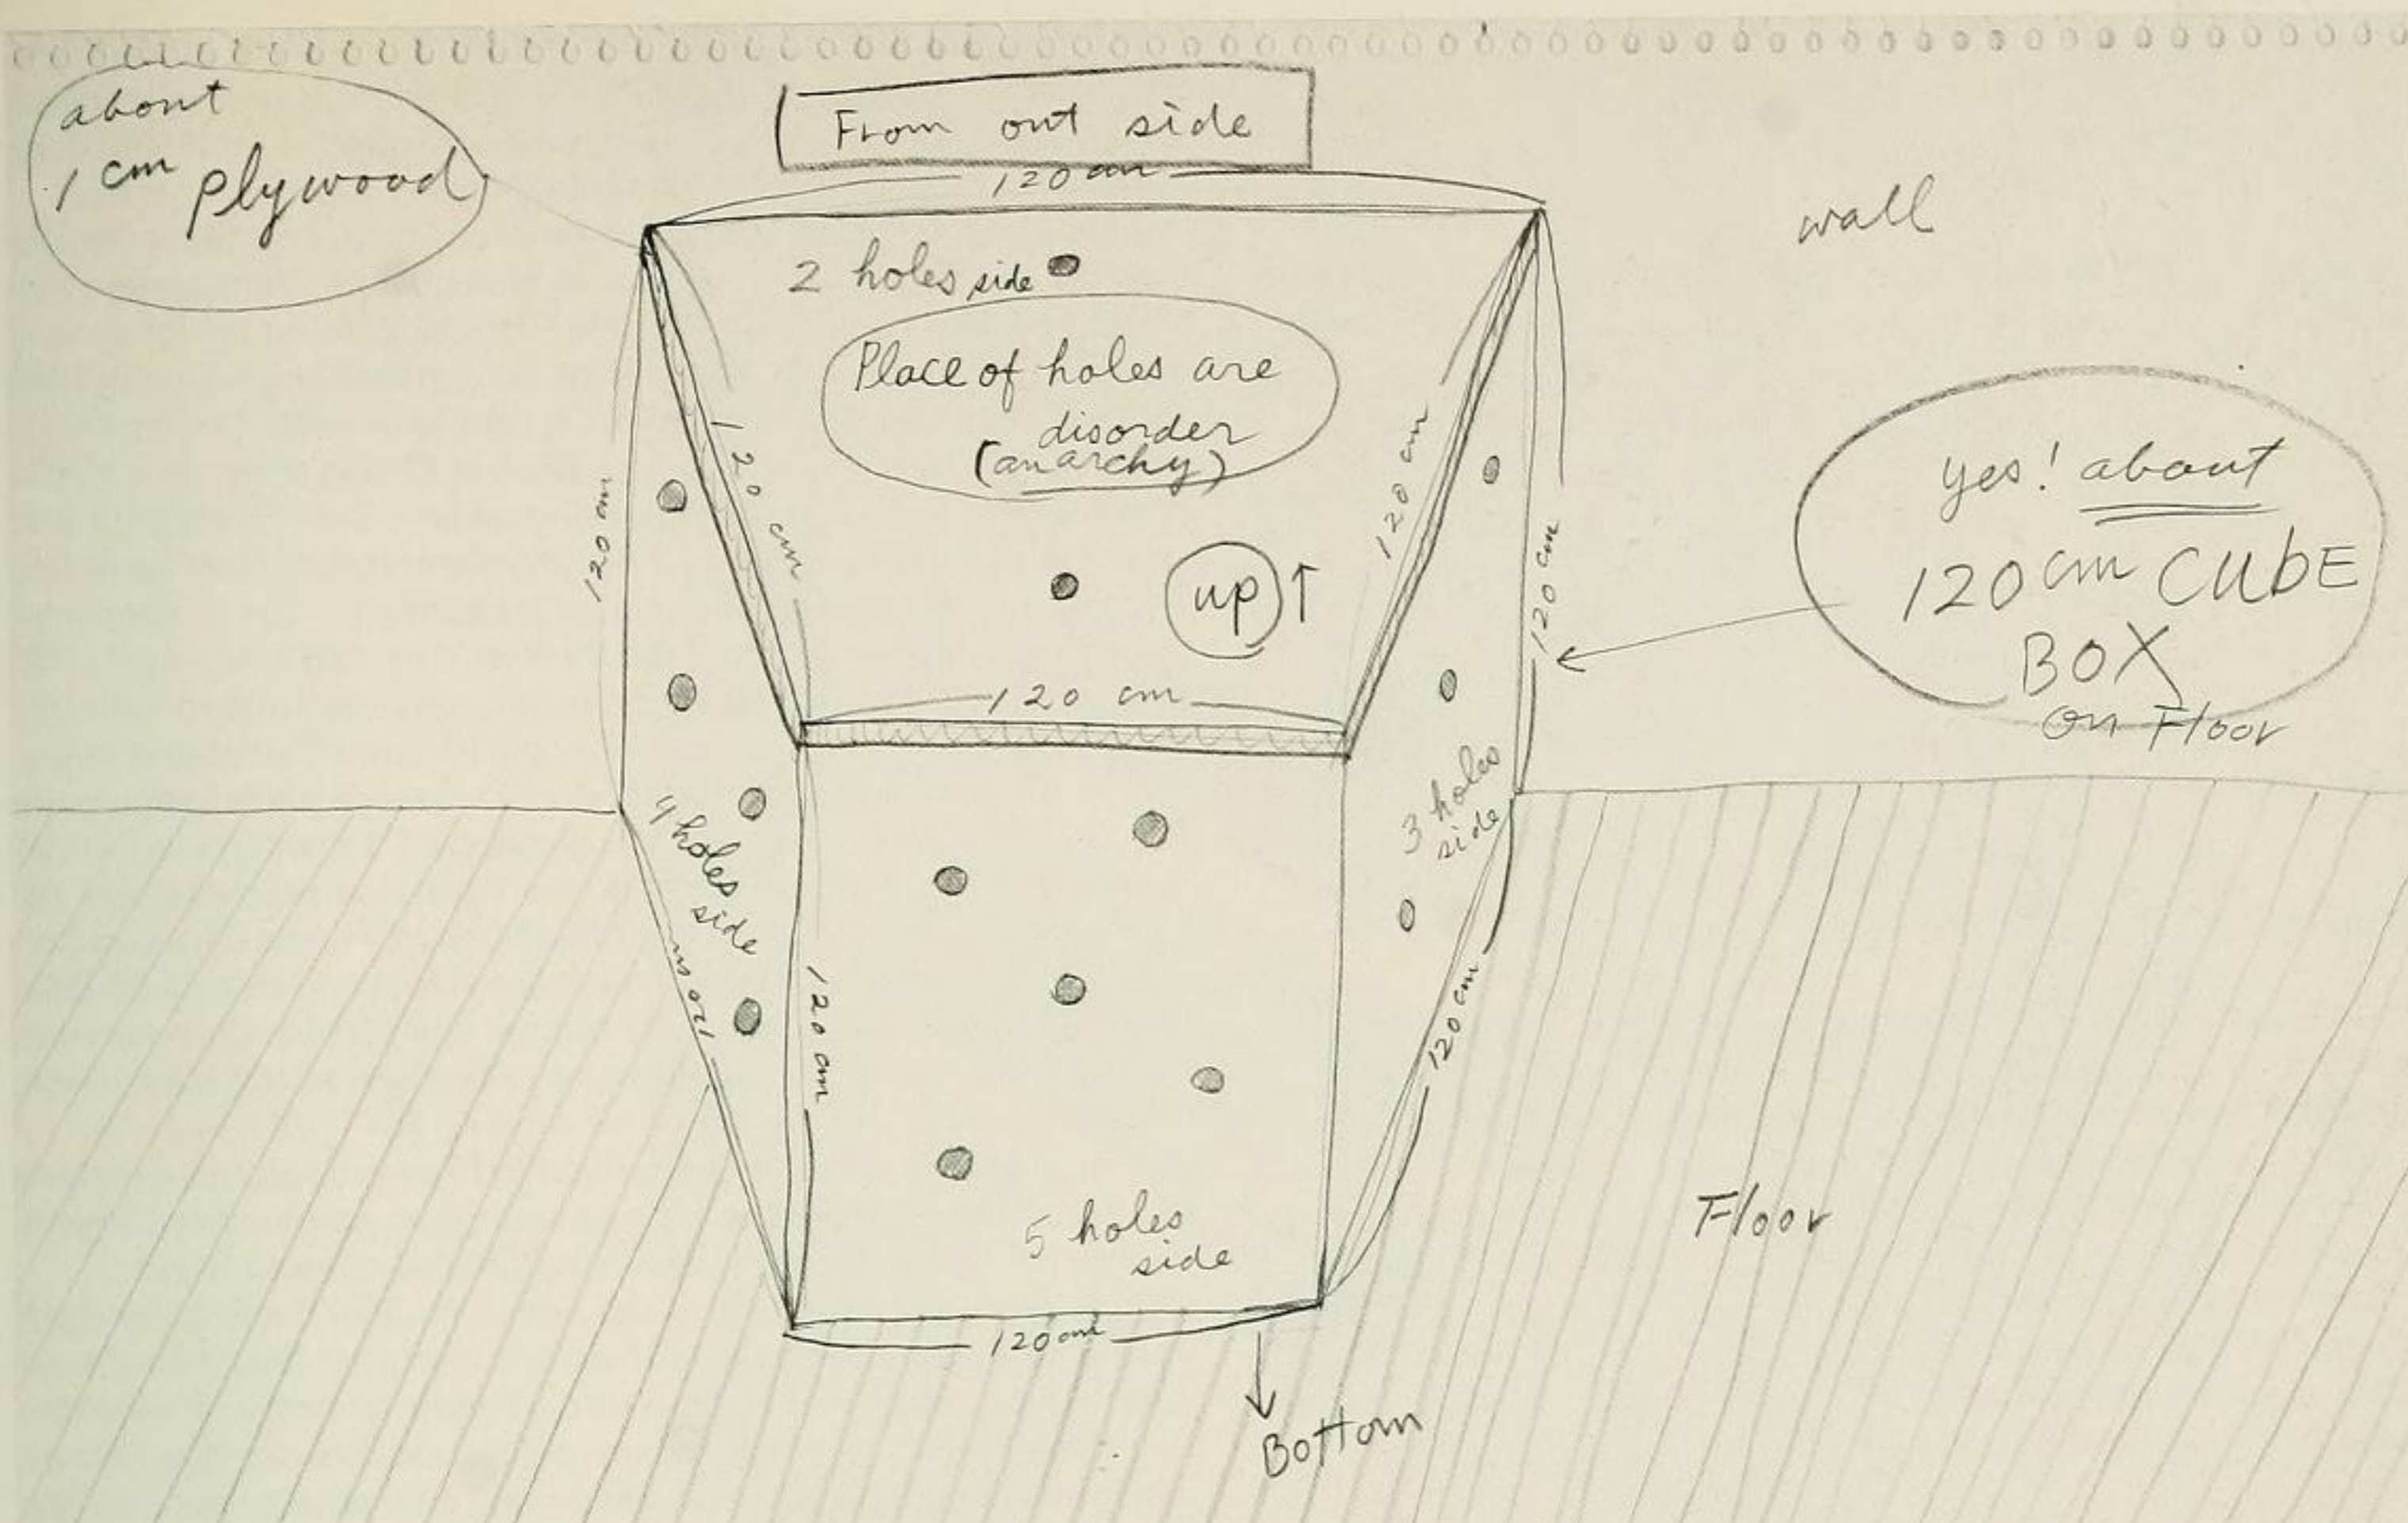 about
1 cm plywood
From out side
120 cm
wall
2 holes side
Place of holes are
disorder
(anarchy)
120 cm
120 cm
120 cm
120 cm
up ↑
120 cm
yes! about
120 cm CUbE
BOX
on Floor
4 holes
side
3 holes
side
120 cm
120 cm
120 cm
5 holes
side
120 cm
Floor
Bottom